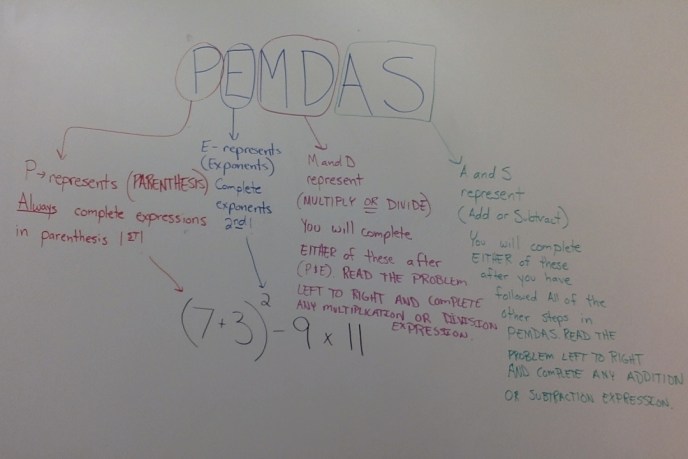 PEMDAS
P→represents (PARENTHESIS)
Always complete expressions
in parenthesis 1ST!
E- represents
(Exponents)
Complete
exponents
2nd!
M and D
represent
(MULTIPLY OR DIVIDE)
You will complete
EITHER of these after
(P&E). READ THE PROBLEM
LEFT TO RIGHT AND COMPLETE
ANY MULTIPLICATION OR DIVISION
EXPRESSION.
A and S
represent
(Add or Subtract)
You will complete
EITHER of these
after you have
followed All of the
other steps in
PEMDAS. READ THE
PROBLEM LEFT TO RIGHT
AND COMPLETE ANY ADDITION
OR SUBTRACTION EXPRESSION.
(7+3)² - 9 x 11